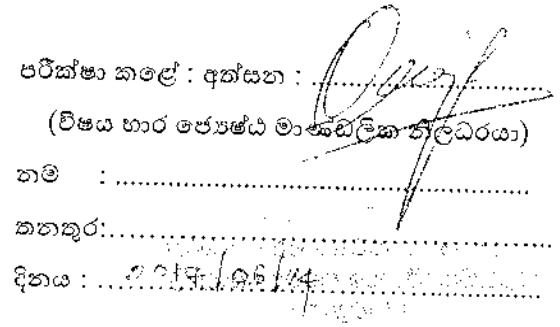 පරීක්ෂා කළේ : අත්සන : ..............................
(විෂය භාර ජ්‍යෙෂ්ඨ මාණ්ඩලික නිලධරයා)
නම : ..............................
තනතුර: ..............................
දිනය : ..............................